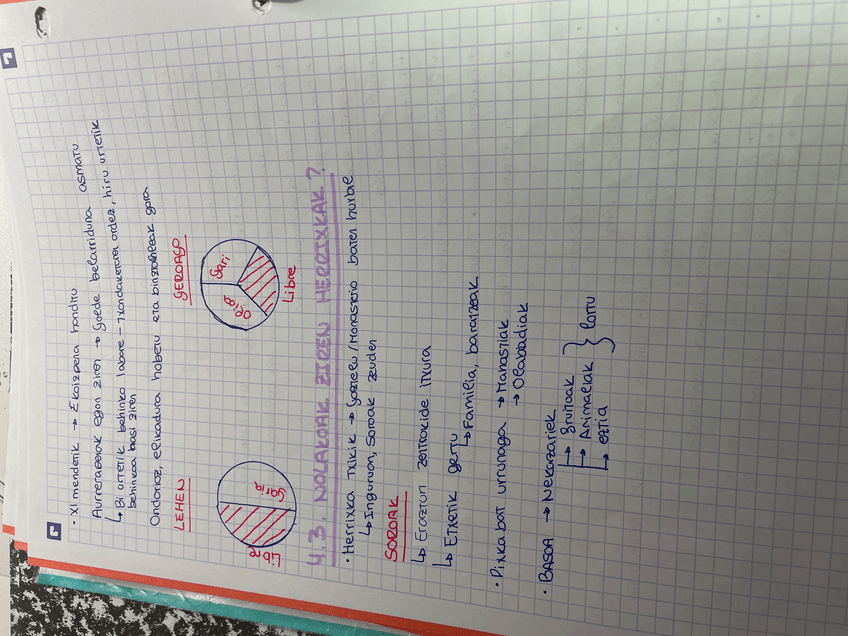 · XI mendetik → Ekoizpena handitu
Aurrerapenak egon ziren → Golde belarriduna asmatu
↳ Bi urtetik behinko labore - txandaketaren ordez, hiru urtetik
behinkoa hasi ziren
Ondorioz, elikadura hobetu eta biztanleak gora
LEHEN
GEROAGO
Libre
Garia
Gari
Oloa
Libre
4.3. NOLAKOAK ZIREN HERRIXKAK?
· Herrixka txikik → Gaztelu/Monasterio baten hurbil
↳ Inguruan, soroak zeuden
SOROAK
↳ Eraztun zentrokide itxura
↳ Etxetik gertu
↳ Familia, baratzeak
· Pixka bat urrunago → Mahastiak
→ Olibadiak
· BASOA → Nekazariek
→ Fruituak
→ Animaliak
→ eztia
} lortu